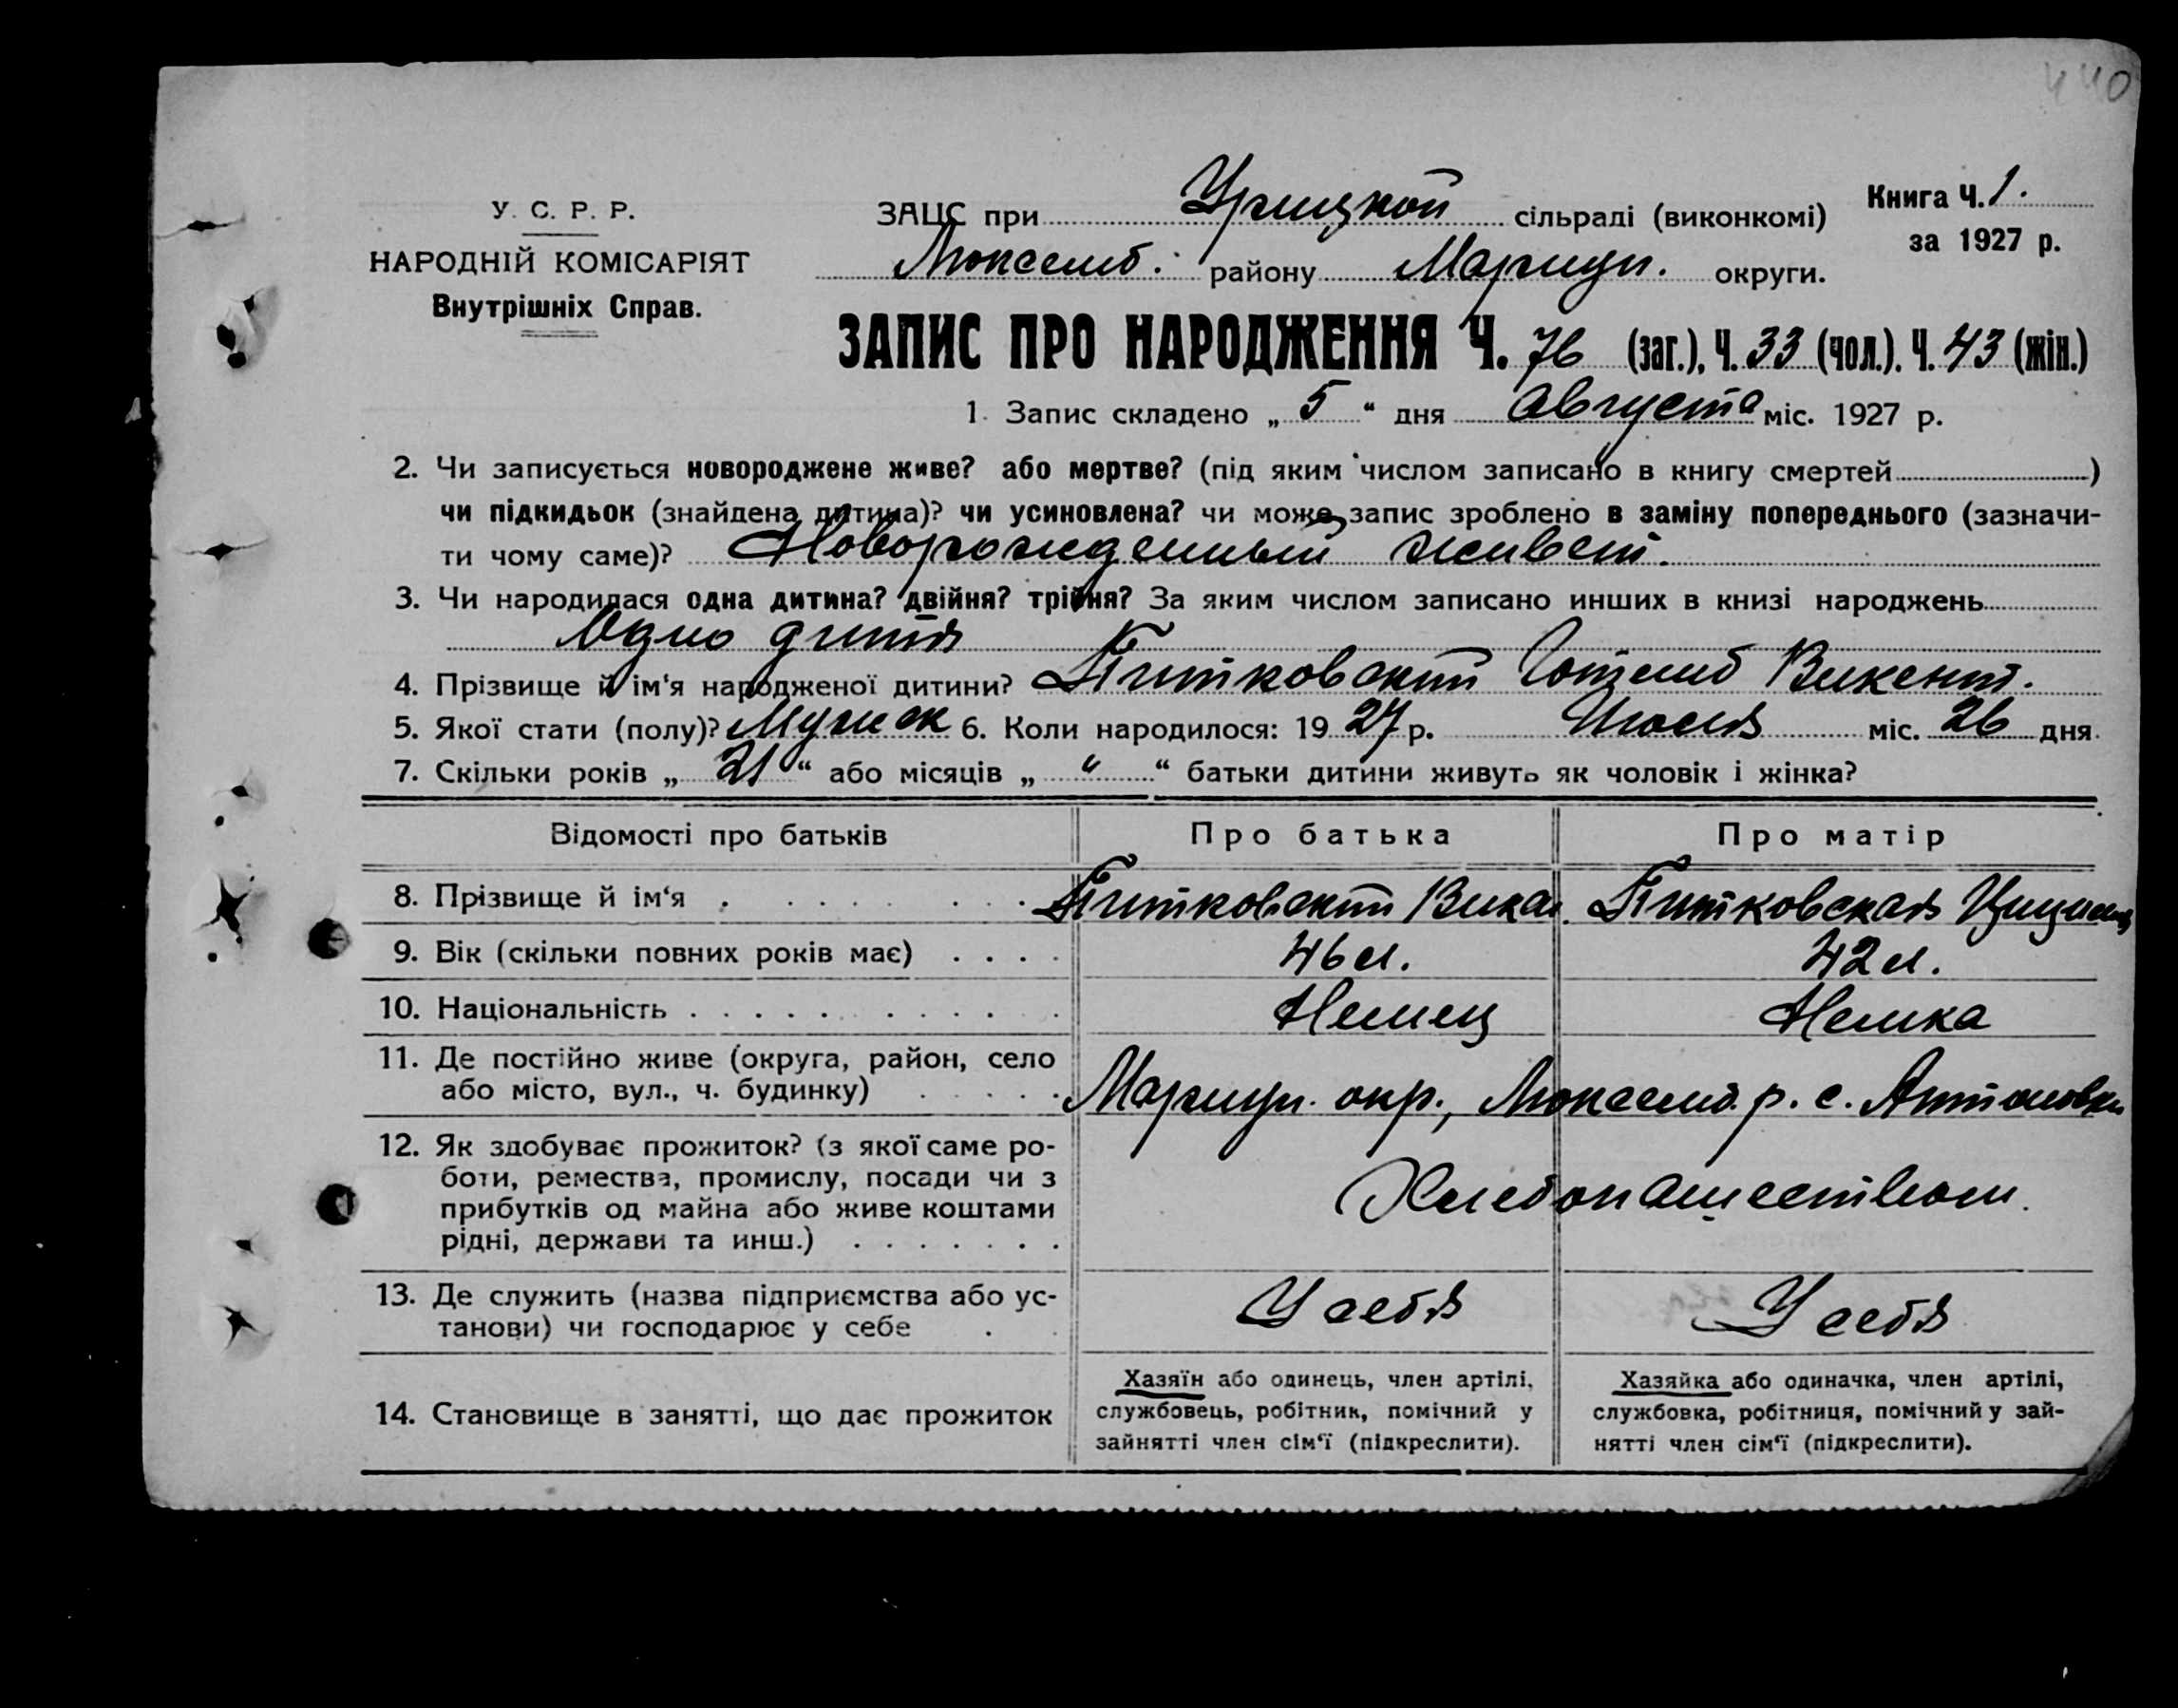 440
У. С. Р. Р.
НАРОДНІЙ КОМІСАРІЯТ
Внутрішніх Справ.
ЗАЦС при Урицкой сільраді (виконкомі)
Книга Ч. 1.
за 1927 р.
Люксемб. району Мариуп. округи.
ЗАПИС ПРО НАРОДЖЕННЯ Ч. 76 (заг.), Ч. 33 (чол.). Ч. 43 (жін.)
1. Запис складено „ 5 “ дня Августа міс. 1927 р.
2. Чи записується новороджене живе? або мертве? (під яким числом записано в книгу смертей )
чи підкидьок (знайдена дитина)? чи усиновлена? чи може запис зроблено в заміну попереднього (зазначи-
ти чому саме)? Новорожденный живет.
3. Чи народилася одна дитина? двійня? трійня? За яким числом записано инших в книзі народжень
Одно дитя
4. Прізвище й ім‘я народженої дитини? Питковский Готлиб Викент.
5. Якої стати (полу)? Мужск 6. Коли народилося: 19 27 р. Июля міс. 26 дня.
7. Скільки років „ 21 “ або місяців „ “ “ батьки дитини живуть як чоловік і жінка?
Відомості про батьків Про батька Про матір
8. Прізвище й ім‘я Питковский Питковская
9. Вік (скільки повних років має) 46 л. 42 л.
10. Національність Немец Немка
11. Де постійно живе (округа, район, село
або місто, вул., ч. будинку) Мариуп. окр., Люксемб. р. с. Антоновка
12. Як здобуває прожиток? (з якої саме ро-
боти, ремества, промислу, посади чи з
прибутків од майна або живе коштами
рідні, держави та инш.) Хлебопашеством.
13. Де служить (назва підприємства або ус-
танови) чи господарює у себе У себя У себя
14. Становище в занятті, що дає прожиток
Хазяїн або одинець, член артілі,
службовець, робітник, помічний у
зайнятті член сім‘ї (підкреслити).
Хазяйка або одиначка, член артілі,
службовка, робітниця, помічний у зай-
нятті член сім‘ї (підкреслити).